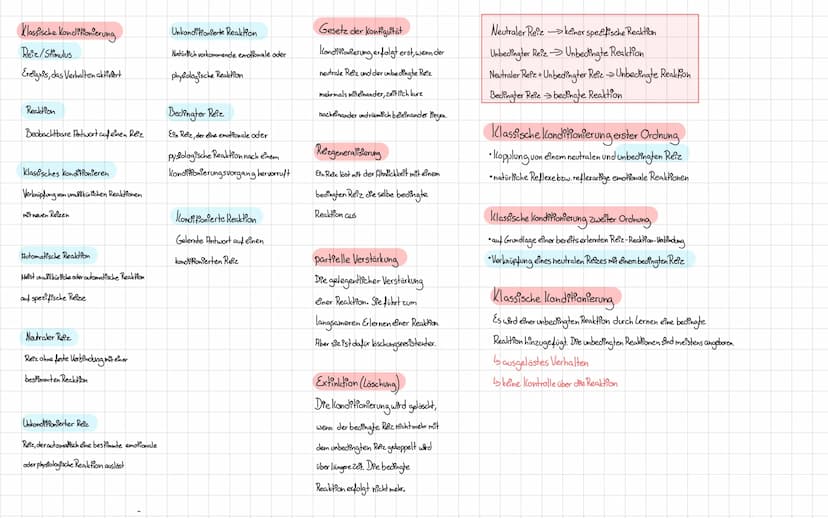 Klassische Konditionierung
Reiz/Stimulus
Ereignis, das Verhalten aktiviert
Reaktion
Beobachtbare Antwort auf einen Reiz
Klassisches konditionieren
Verknüpfung von unwillkürlichen Reaktionen
mit neuen Reizen
Automatische Reaktion
Meist unwillkürliche oder automatische Reaktion
auf spezifische Reize
Neutraler Reiz
Reiz ohne feste Verbindung mit einer
bestimmten Reaktion
Unkonditionierter Reiz
Reiz, der automatisch eine bestimmte emotionale
oder physiologische Reaktion auslöst
Unkonditionierte Reaktion
Natürlich vorkommende emotionale oder
physiologische Reaktion
Bedingter Reiz
Ein Reiz, der eine emotionale oder
pysiologische Reaktion nach einem
Konditionierungsvorgang hervorruft
Konditionierte Reaktion
Gelernte Antwort auf einen
konditionierten Reiz
Gesetz der Kontiguität
Konditionierung erfolgt erst, wenn der
neutrale Reiz und der unbedingte Reiz
mehrmals miteinander, zeitlich kurz
nacheinander und räumlich beieinander liegen.
Reizgeneralisierung
Ein Reiz löst mit der Ähnlichkeit mit einem
bedingten Reiz die selbe bedingte
Reaktion aus
partielle Verstärkung
Die gelegentlicher Verstärkung
einer Reaktion. Sie führt zum
langsameren Erlernen einer Reaktion
Aber sie ist dafür löschungsresistenter.
Extinktion (Löschung)
Die Konditionierung wird gelöscht,
wenn der bedingte Reiz nicht mehr mit
dem unbedingten Reiz gekoppelt wird
über längere Zeit. Die bedingte
Reaktion erfolgt nicht mehr.
Neutraler Reiz → keiner spezifische Reaktion
Unbedingter Reiz → Unbedingte Reaktion
Neutraler Reiz + Unbedingter Reiz → Unbedingte Reaktion
Bedingter Reiz → bedingte Reaktion
Klassische Konditionierung erster Ordnung
• Kopplung von einem neutralen und unbedingten Reiz
• natürliche Reflexe bzw. reflexartige emotionale Reaktionen
Klassische Konditionierung zweiter Ordnung
• auf Grundlage einer bereits erlernten Reiz-Reaktion-Verbindung
• Verknüpfung eines neutralen Reizes mit einem bedingten Reiz
Klassische Konditionierung
Es wird einer unbedingten Reaktion durch Lernen eine bedingte
Reaktion hinzugefügt. Die unbedingten Reaktionen sind meistens angeboren.
↳ ausgelöstes Verhalten
↳ keine Kontrolle über die Reaktion